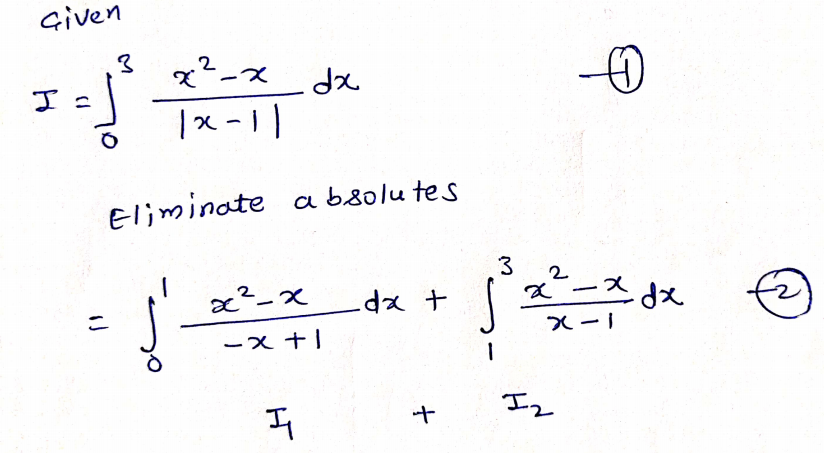 Given
I = ∫₀³ (x² - x) / |x - 1| dx —①
Eliminate absolutes
= ∫₀¹ (x² - x) / (-x + 1) dx + ∫₁³ (x² - x) / (x - 1) dx —②
I₁ + I₂